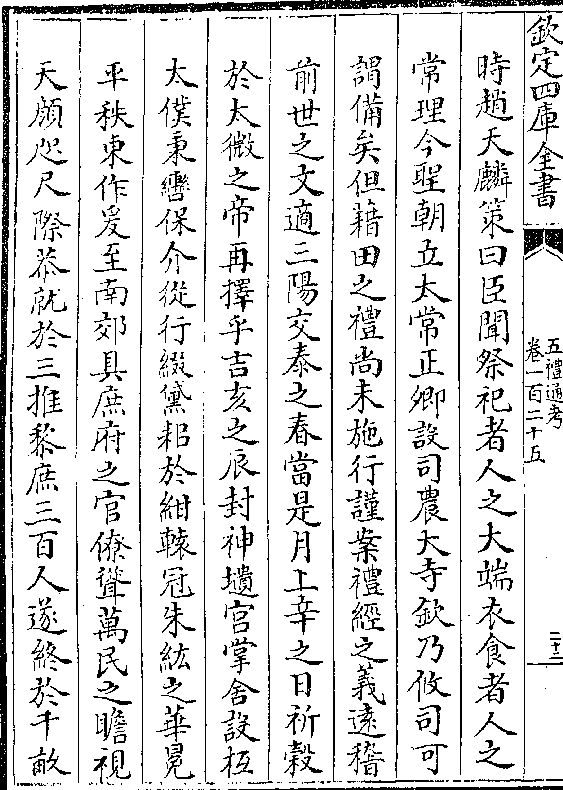 欽定四庫全書
五禮通考
卷一百二十五
二十二
時趙天麟策曰臣聞祭祀者人之大端衣食者人之
常理今聖朝立太常正卿設司農大寺欽乃攸司可
謂備矣但藉田之禮尚未施行謹案禮經之義遠稽
前世之文適三陽交泰之春當是月上辛之日祈榖
於太微之帝再擇乎吉亥之辰封神壝宫掌舍設枑
太僕秉轡保介從行綴黛耜於紺轅冠朱紘之華冕
平秩東作爰至南郊具庶府之官僚聳萬民之瞻視
天顔咫尺際恭就於三推黎庶三百人遂終於千畝